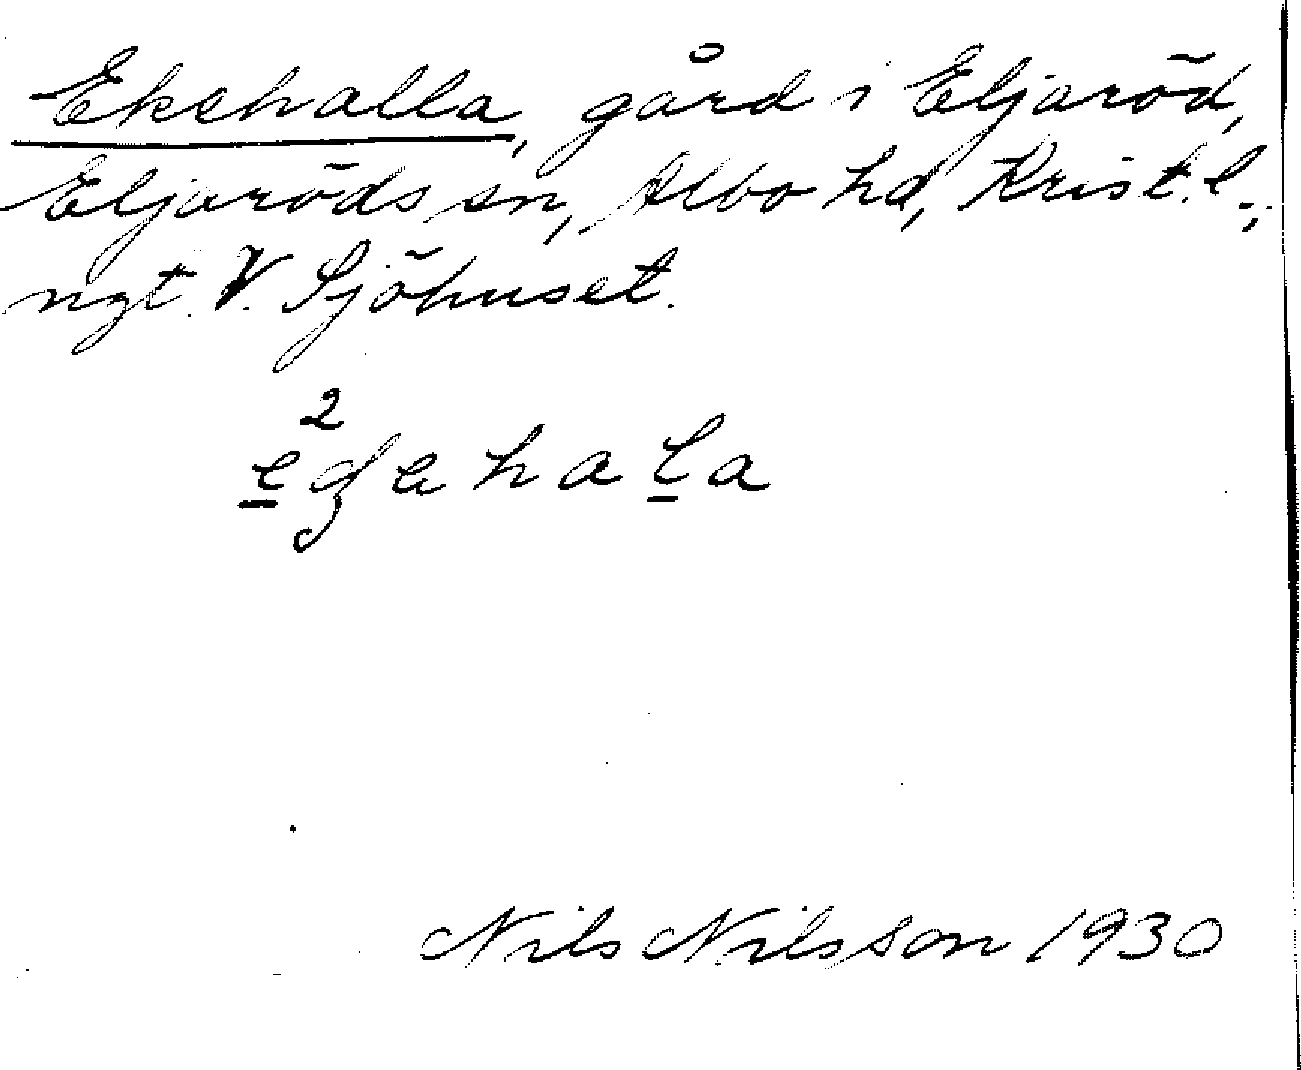 Ekehalla, gård i Eljaröd,
Eljaröds sn, Albo hd, Krist. l.,
ngt. V. Sjöhuset.
2
egehala
Nils Nilsson 1930